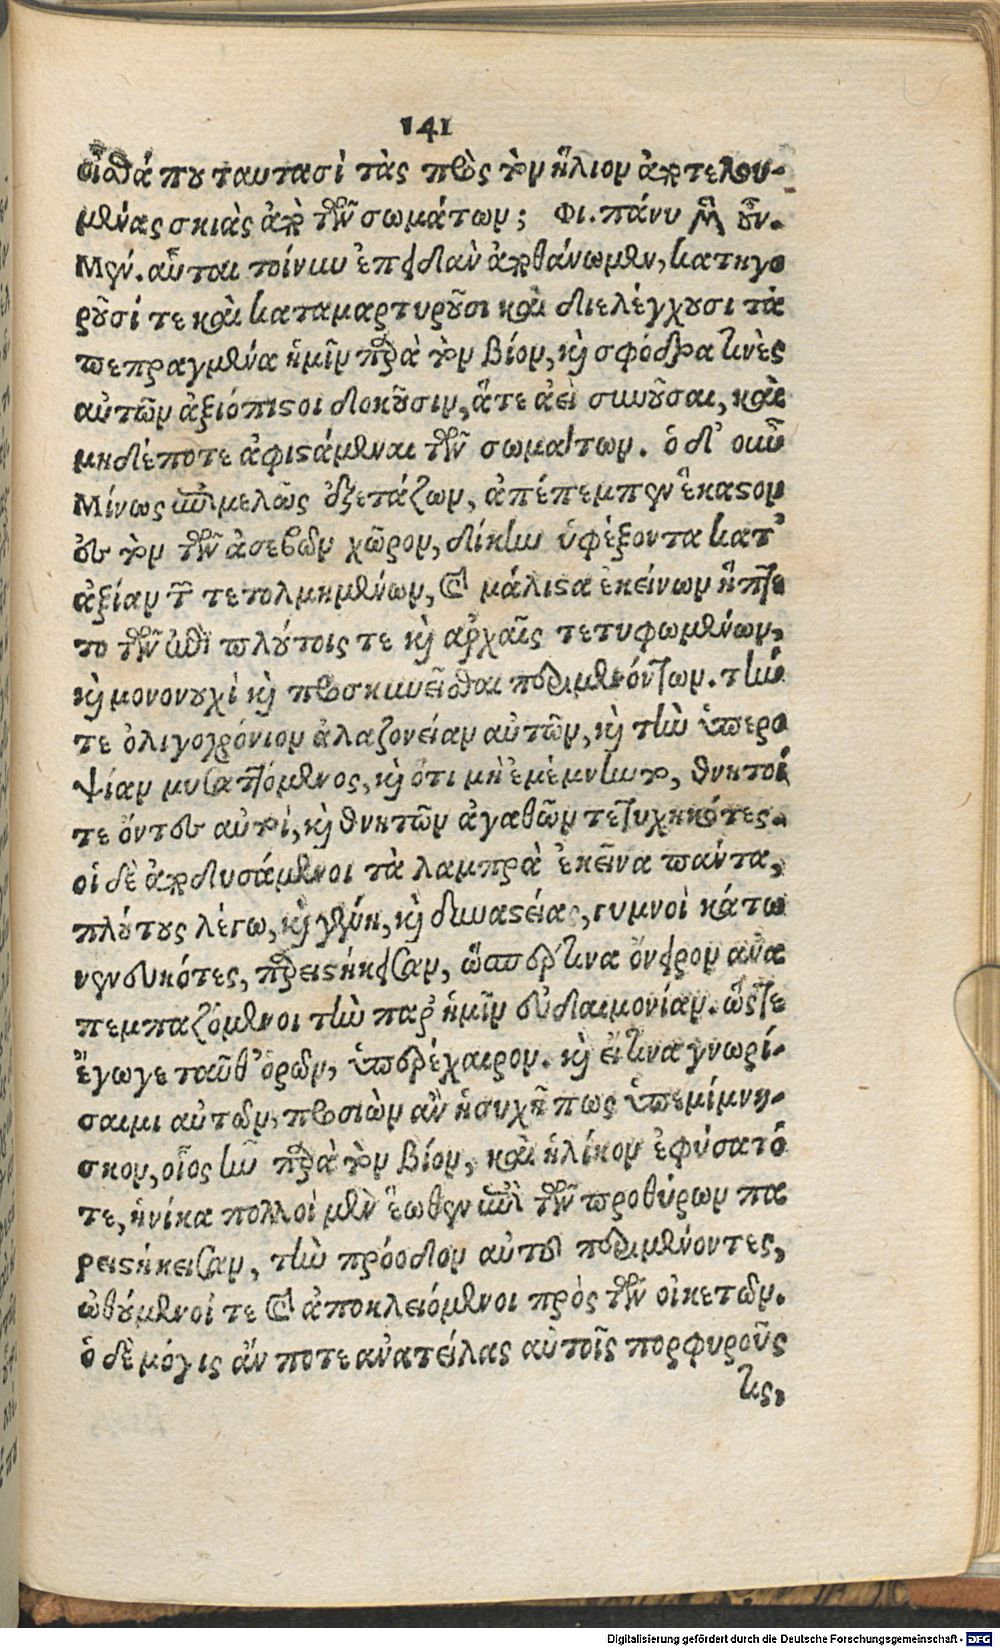 141
οἶσθά που ταυτασὶ τὰς πρὸς τὸν ἥλιον ἀποτελου-
μένας σκιὰς ἀπὸ τῶν σωμάτων; Φι. πάνυ μὲν οὖν.
Μεν. αὗται τοίνυν ἐπειδὰν ἀποθάνωμεν, κατηγο
ροῦσί τε καὶ καταμαρτυροῦσι καὶ διελέγχουσι τὰ
πεπραγμένα ἡμῖν παρὰ τὸν βίον, καὶ σφόδρα τινὲς
αὐτῶν ἀξιόπιστοι δοκοῦσιν, ἅτε ἀεὶ συνοῦσαι, καὶ
μηδέποτε ἀφιστάμεναι τῶν σωμάτων. ὁ δ' οὖν
Μίνως ἐπιμελῶς ἐξετάζων, ἀπέπεμπεν ἕκαστον
ἐς τὸν τῶν ἀσεβῶν χῶρον, δίκην ὑφέξοντα κατ'
ἀξίαν τῶν τετολμημένων, καὶ μάλιστα ἐκείνων ἥπτε
το τῶν ἐπὶ πλούτοις τε καὶ ἀρχαῖς τετυφωμένων,
καὶ μονονουχὶ καὶ προσκυνεῖσθαι περιμενόντων. τήν
τε ὀλιγοχρόνιον ἀλαζονείαν αὐτῶν, καὶ τὴν ὑπερο
ψίαν μυσαττόμενος, καὶ ὅτι μὴ ἐμέμνηντο, θνητοί
τε ὄντες αὐτοί, καὶ θνητῶν ἀγαθῶν τετυχηκότες.
οἱ δὲ ἀποδυσάμενοι τὰ λαμπρὰ ἐκεῖνα πάντα,
πλούτους λέγω, καὶ γένη, καὶ δυναστείας, γυμνοὶ κάτω
νενευκότες, παρειστήκεισαν, ὥσπερ τινα ὄνειρον ἀνα
πεμπαζόμενοι τὴν παρ' ἡμῖν εὐδαιμονίαν. ὥστε
ἔγωγε ταῦθ' ὁρῶν, ὑπερέχαιρον. καὶ εἴ τινα γνωρί-
σαιμι αὐτῶν, προσιὼν ἂν ἡσυχῆ πως ὑπεμίμνη-
σκον, οἷος ἦν παρὰ τὸν βίον, καὶ ἡλίκον ἐφύσα τό
τε, ἡνίκα πολλοὶ μὲν ἕωθεν ἐπὶ τῶν προθύρων πα
ρειστήκεισαν, τὴν πρόοδον αὐτοῦ περιμένοντες,
ὠθούμενοί τε καὶ ἀποκλειόμενοι πρὸς τῶν οἰκετῶν.
ὁ δὲ μόγις ἄν ποτε ἀνατείλας αὐτοῖς πορφυροῦς
τις,
Digitalisierung gefördert durch die Deutsche Forschungsgemeinschaft - DFG